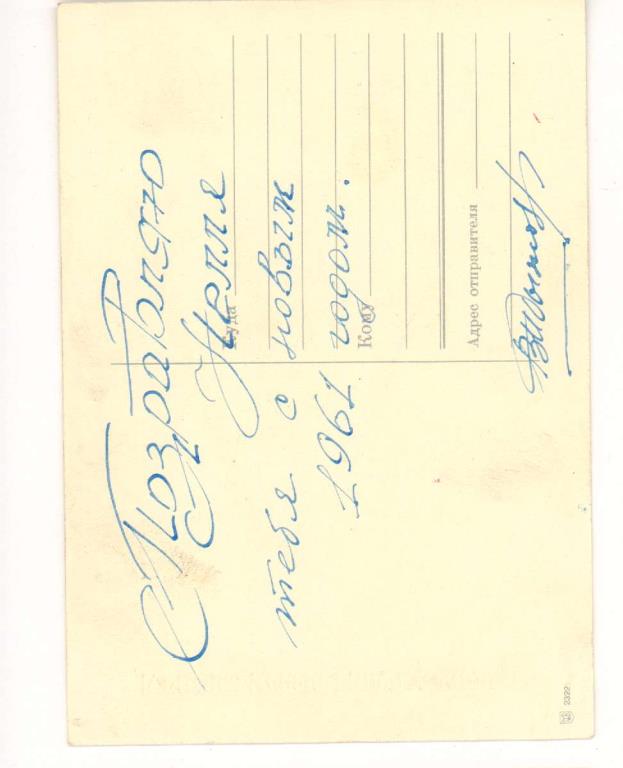 Поздравляю
Нелля
тебя с новым
1961 годом.
Куда
Кому
Адрес отправителя
2322